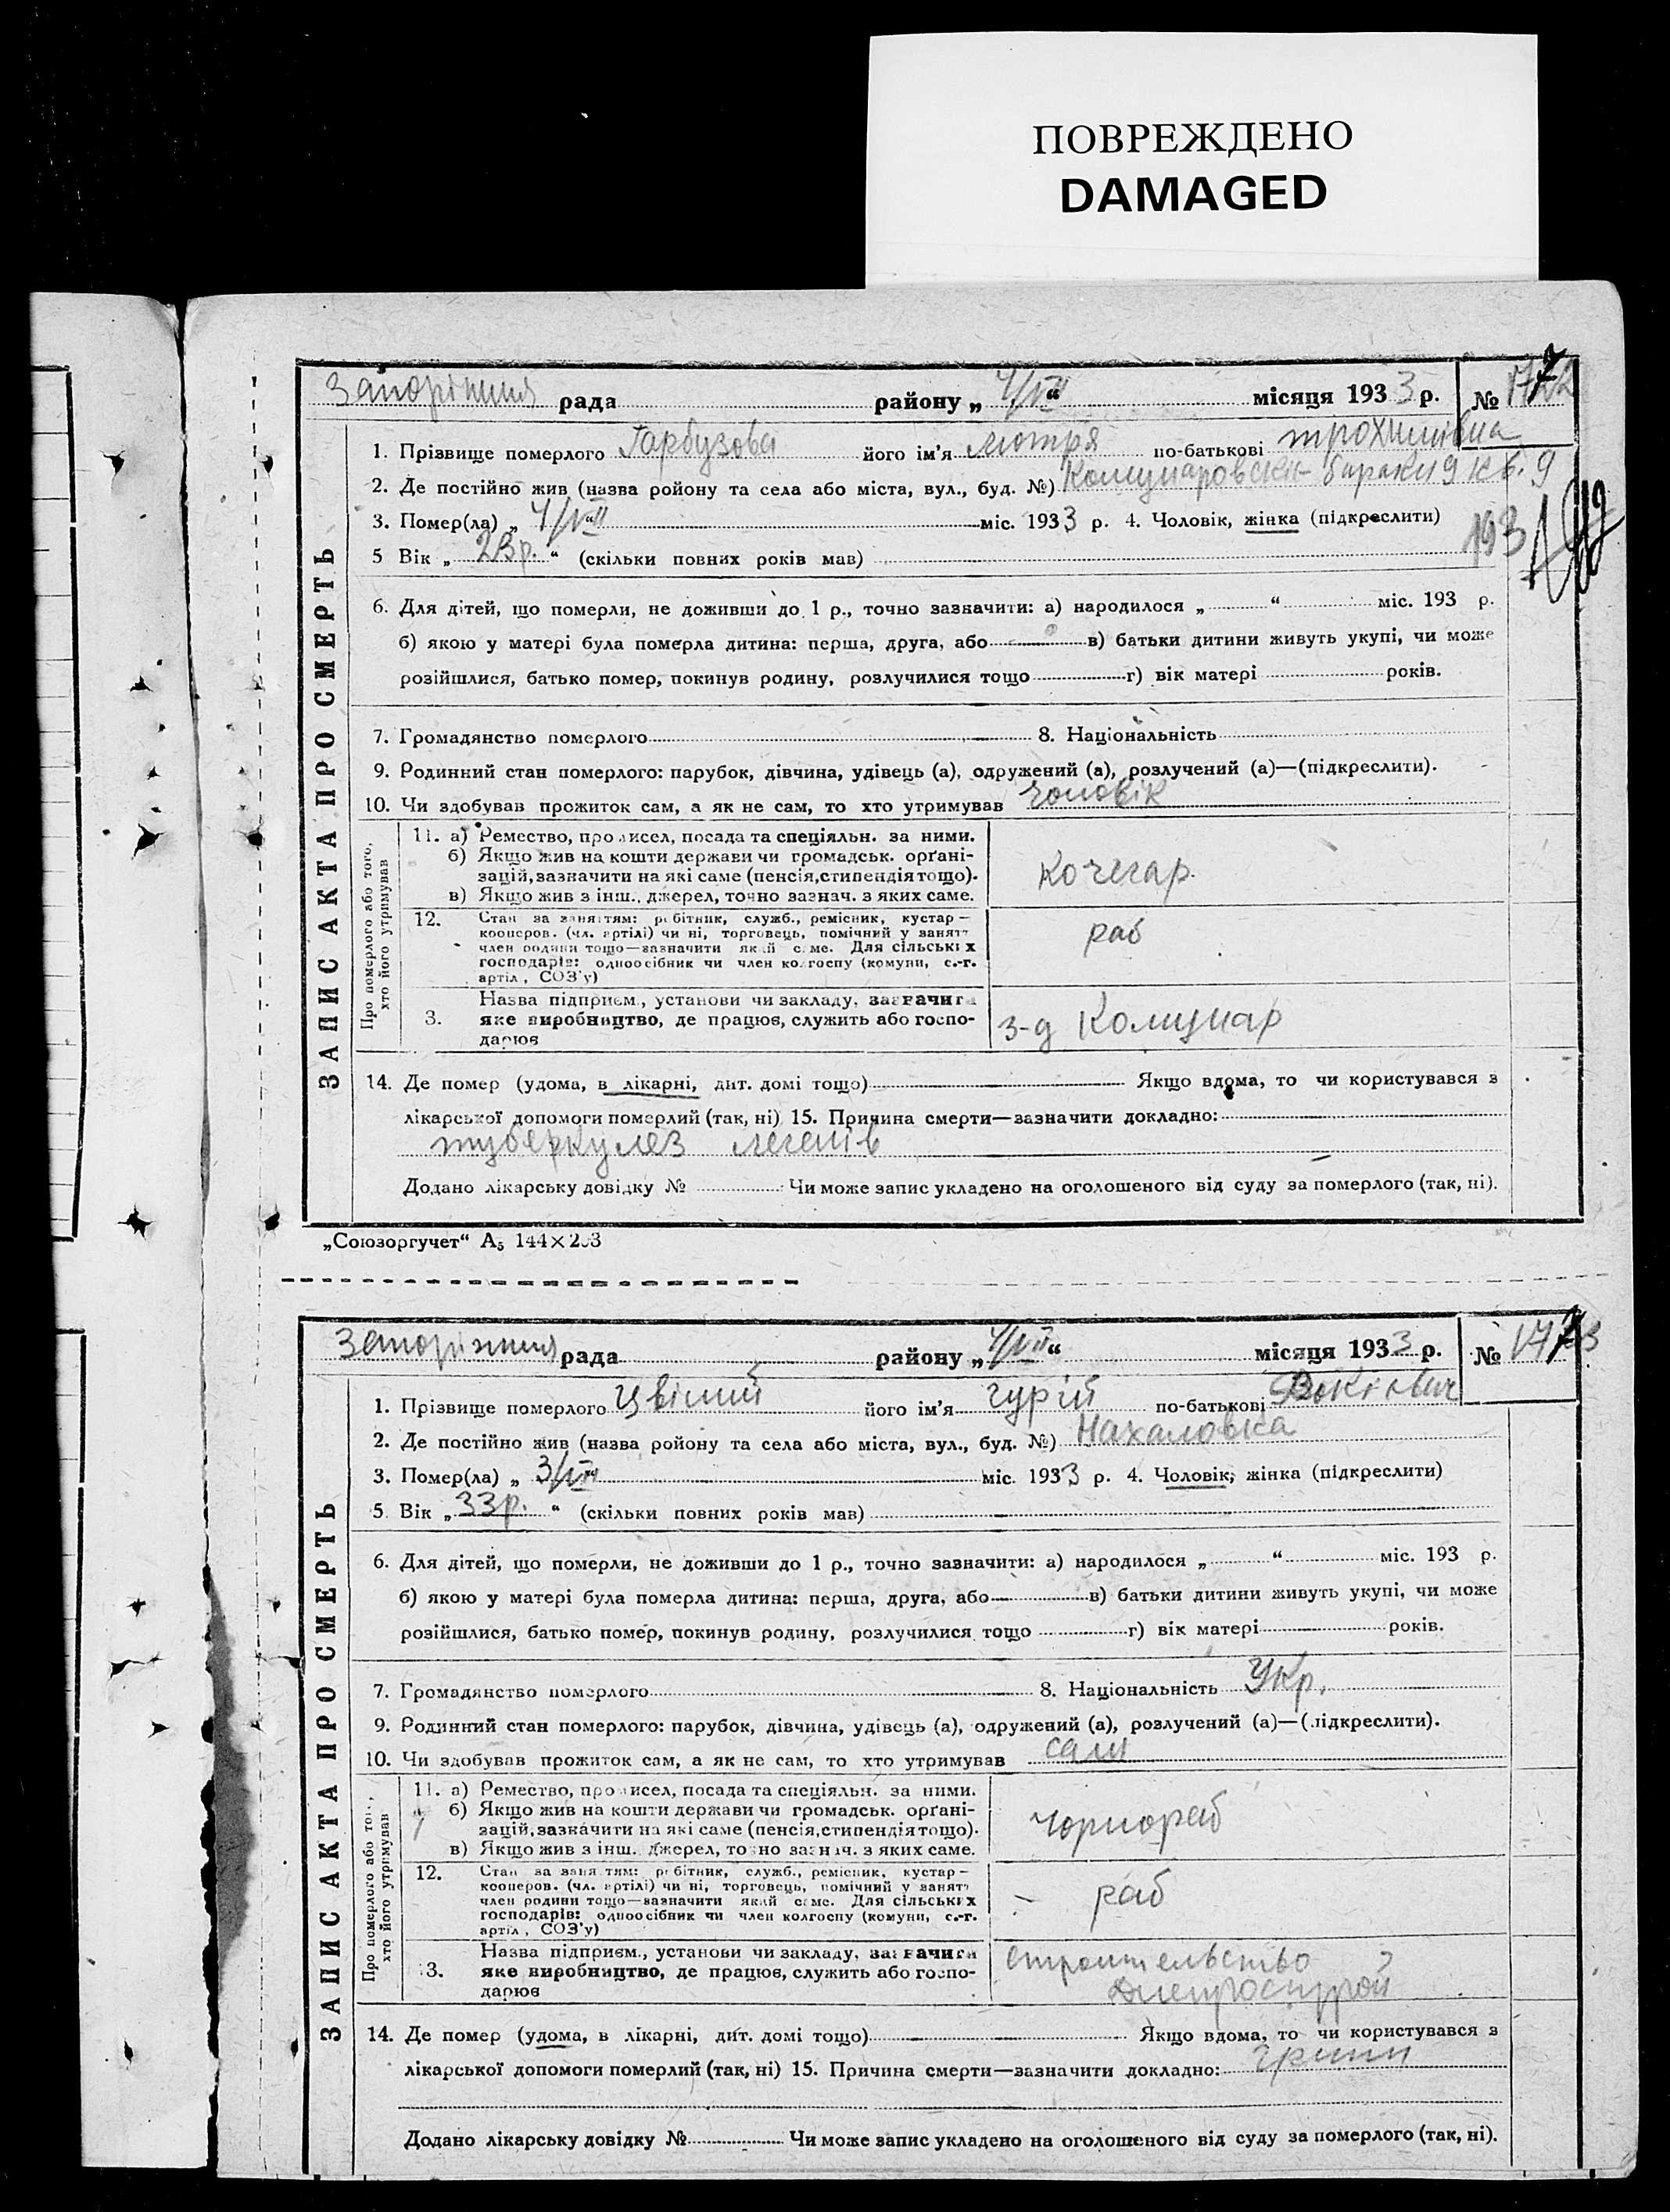 ПОВРЕЖДЕНО
DAMAGED
Запоріжжя рада района „4/VII“ місяця 1933 р. №
1. Прізвище померлого Гарбузова його ім'я Мотря по-батькові Трохимівна
2. Де постійно жив (назва ройону та села або міста, вул., буд. №) Комунаровскі бараки 9 кв. 9
3. Помер(ла) „4/VII“ міс. 1933 р. 4. Чоловік, жінка (підкреслити)
193
5 Вік „23р.“ (скільки повних років мав)
6. Для дітей, що померли, не доживши до 1 р., точно зазначити: а) народилося „ “ міс. 193 р.
б) якою у матері була померла дитина: перша, друга, або в) батьки дитини живуть укупі, чи може
розійшлися, батько помер, покинув родину, розлучилися тощо г) вік матері років.
7. Громадянство померлого 8. Національність
9. Родинний стан померлого: парубок, дівчина, удівець (а), одружений (а), розлучений (а)—(підкреслити).
10. Чи здобував прожиток сам, а як не сам, то хто утримував чоловік
ЗАПИС АКТА ПРО СМЕРТЬ
Про померлого або того,
хто його утримував
11. а) Ремество, промисел, посада та спеціяльн. за ними.
б) Якщо жив на кошти держави чи громадськ. орґані-
зацій, зазначити на які саме (пенсія, стипендія тощо).
в) Якщо жив з інш. джерел, точно зазнач. з яких саме.
Кочегар.
12. Стан за заняттям: робітник, служб., ремісник, кустар—
кооперов. (чл. артілі) чи ні, торговець, помічний у занятт
член родини тощо—зазначити який саме. Для сільських
господарів: одноосібник чи член колгоспу (комуни, с.-г.
артіл, СОЗ'у)
раб
3. Назва підприєм., установи чи закладу, зазначити
яке виробництво, де працює, служить або госпо-
дарює
з-д Комунар
14. Де помер (удома, в лікарні, дит. домі тощо) Якщо вдома, то чи користувався з
лікарської допомоги померлий (так, ні) 15. Причина смерти—зазначити докладно:
туберкулез легенів
Додано лікарську довідку № Чи може запис укладено на оголошеного від суду за померлого (так, ні).
„Союзоргучет“ А5 144×203
Запоріжжя рада району „4/VII“ місяця 1933 р. №
1. Прізвище померлого його ім'я Гурій по-батькові
2. Де постійно жив (назва ройону та села або міста, вул., буд. №) Нахаловка
3. Помер(ла) „3/VII“ міс. 1933 р. 4. Чоловік, жінка (підкреслити)
5. Вік „33р.“ (скільки повних років мав)
6. Для дітей, що померли, не доживши до 1 р., точно зазначити: а) народилося „ “ міс. 193 р.
б) якою у матері була померла дитина: перша, друга, або в) батьки дитини живуть укупі, чи може
розійшлися, батько помер, покинув родину, розлучилися тощо г) вік матері років.
7. Громадянство померлого 8. Національність Укр.
9. Родинний стан померлого: парубок, дівчина, удівець (а), одружений (а), розлучений (а)—(підкреслити).
10. Чи здобував прожиток сам, а як не сам, то хто утримував сам
ЗАПИС АКТА ПРО СМЕРТЬ
Про померлого або того,
хто його утримував
11. а) Ремество, промисел, посада та спеціяльн. за ними.
б) Якщо жив на кошти держави чи громадськ. орґані-
зацій, зазначити на які саме (пенсія, стипендія тощо).
в) Якщо жив з інш. джерел, точно зазнач. з яких саме.
Чорнораб
12. Стан за заняттям: робітник, служб., ремісник, кустар—
кооперов. (чл. артілі) чи ні, торговець, помічний у занятт
член родини тощо—зазначити який саме. Для сільських
господарів: одноосібник чи член колгоспу (комуни, с.-г.
артіл, СОЗ'у)
раб
3. Назва підприєм., установи чи закладу, зазначити
яке виробництво, де працює, служить або госпо-
дарює
строительство
Днепрострой
14. Де помер (удома, в лікарні, дит. домі тощо) Якщо вдома, то чи користувався з
лікарської допомоги померлий (так, ні) 15. Причина смерти—зазначити докладно: грипп
Додано лікарську довідку № Чи може запис укладено на оголошеного від суду за померлого (так, ні).